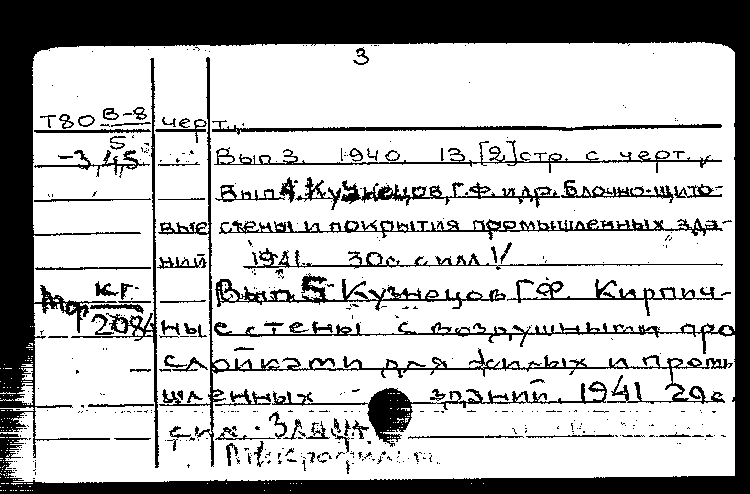 3
Т80 В-8/5 черт.
-3,4,5 Вып 3. 1940. 13, [2] стр. с черт.
Вып 4. Кузнецов, Г.Ф. и др. Блочно-щито-
вые стены и покрытия промышленных зда-
ний 1941. 30 с. с илл.
Вып 5 Кузнецов Г.Ф. Кирпич-
ные стены с воздушными про
слойками для жилых и промы
шленных - зданий. 1941 29 с.
с ил.
Микрофильм